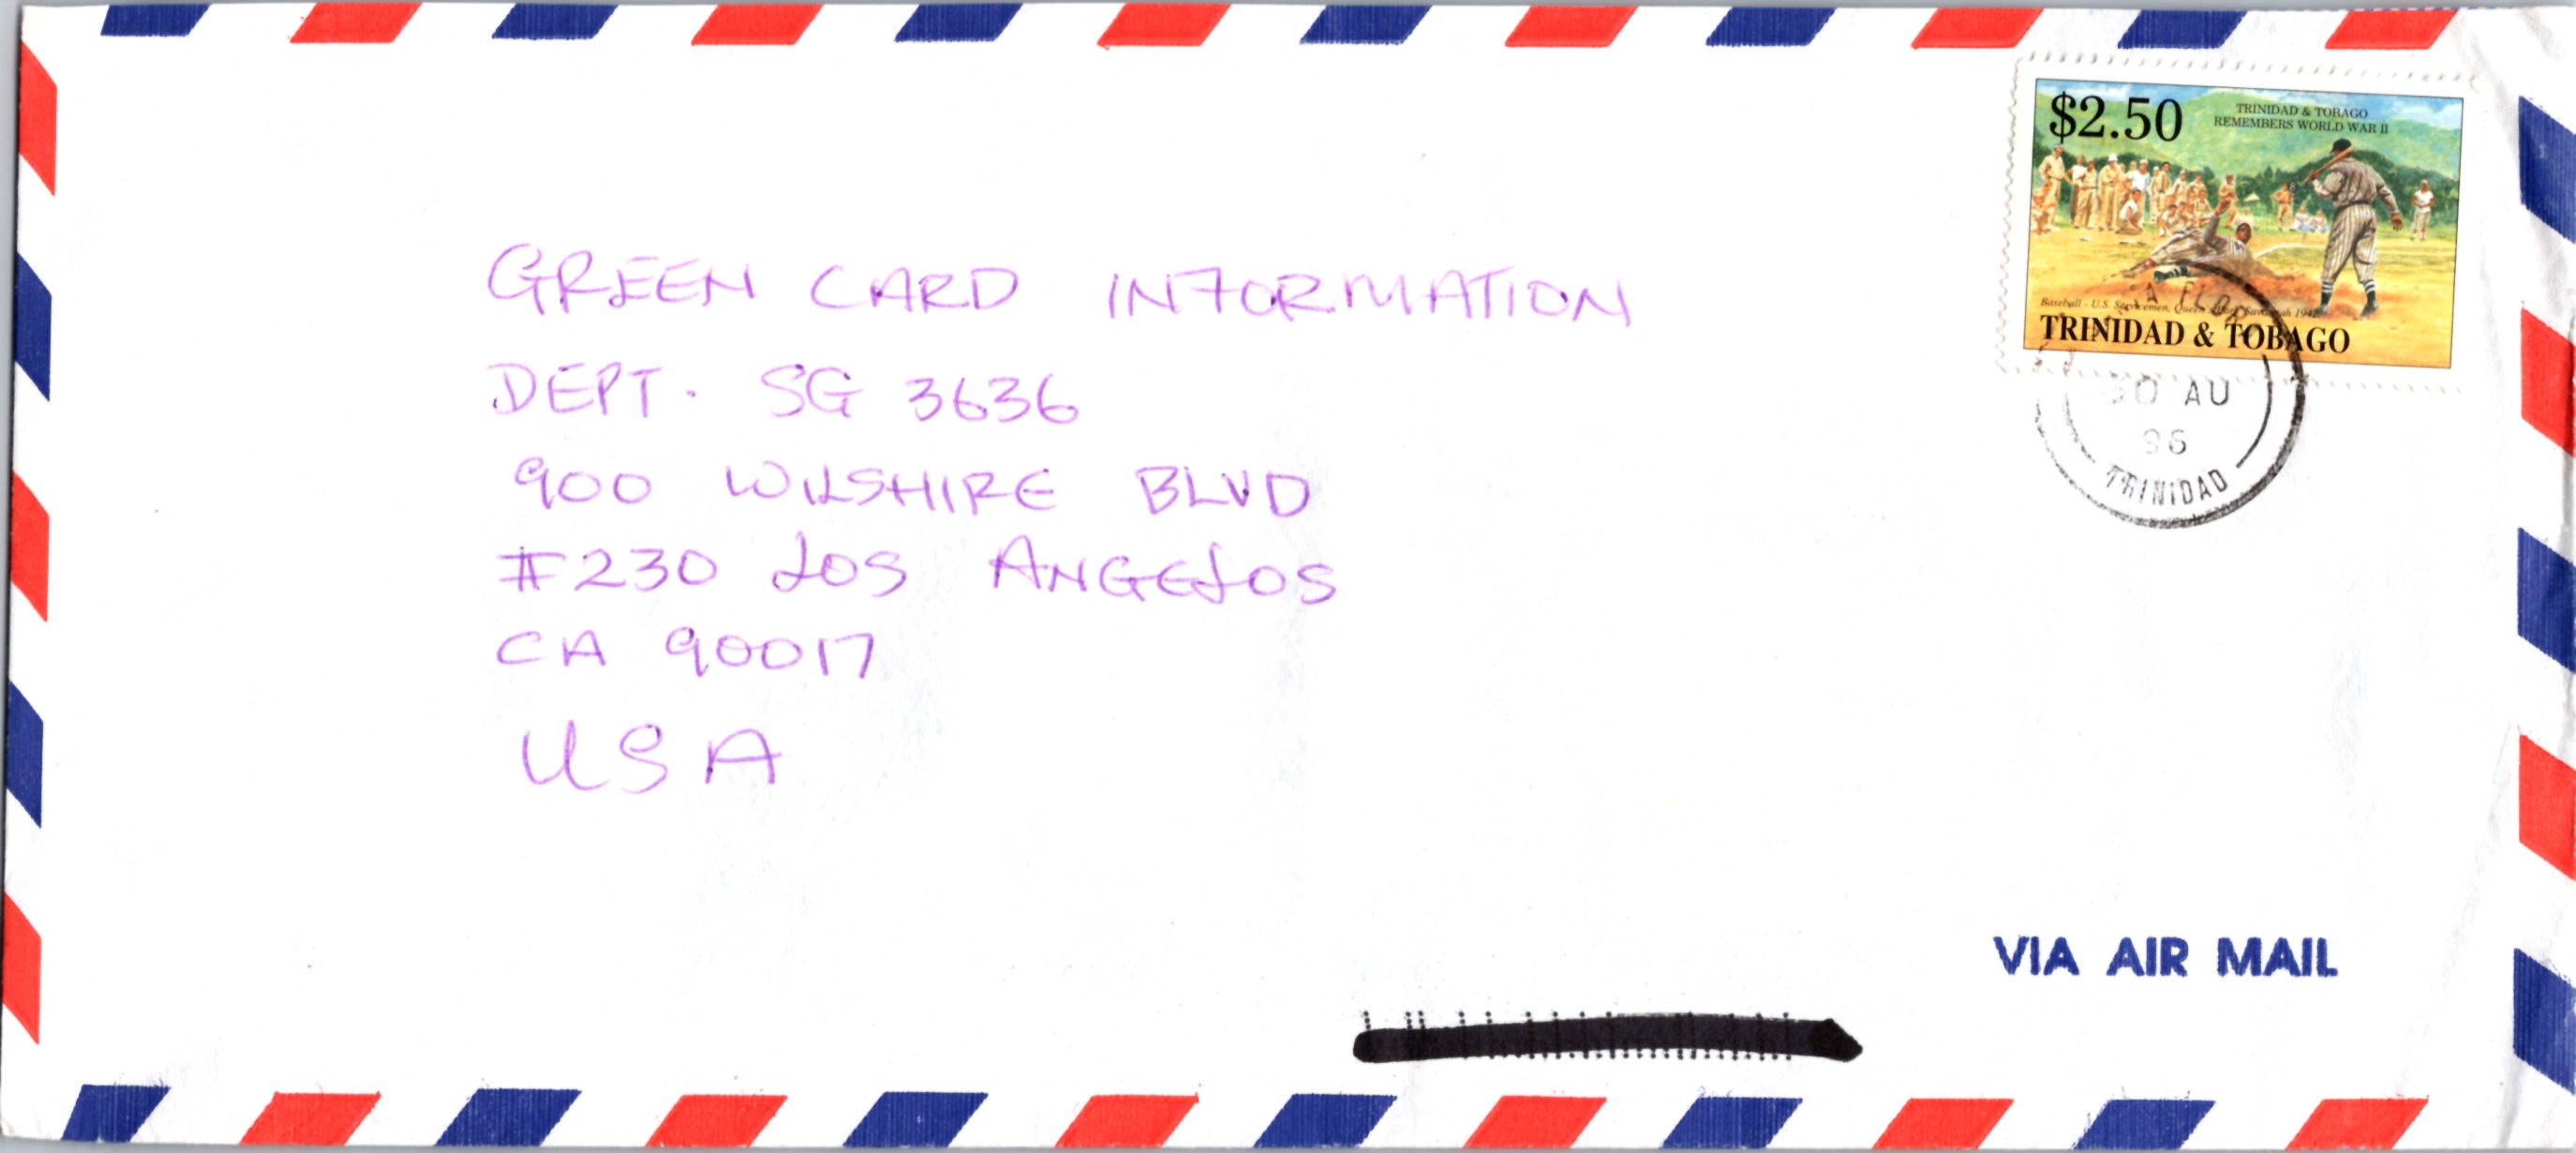 $2.50
TRINIDAD & TOBAGO
REMEMBERS WORLD WAR II
Baseball - U.S. Servicemen, Queen's Park Savannah
TRINIDAD & TOBAGO
30 AU
96
TRINIDAD
GREEN CARD INFORMATION
DEPT. SG 3636
900 WILSHIRE BLVD
#230 LOS ANGELOS
CA 90017
USA
VIA AIR MAIL